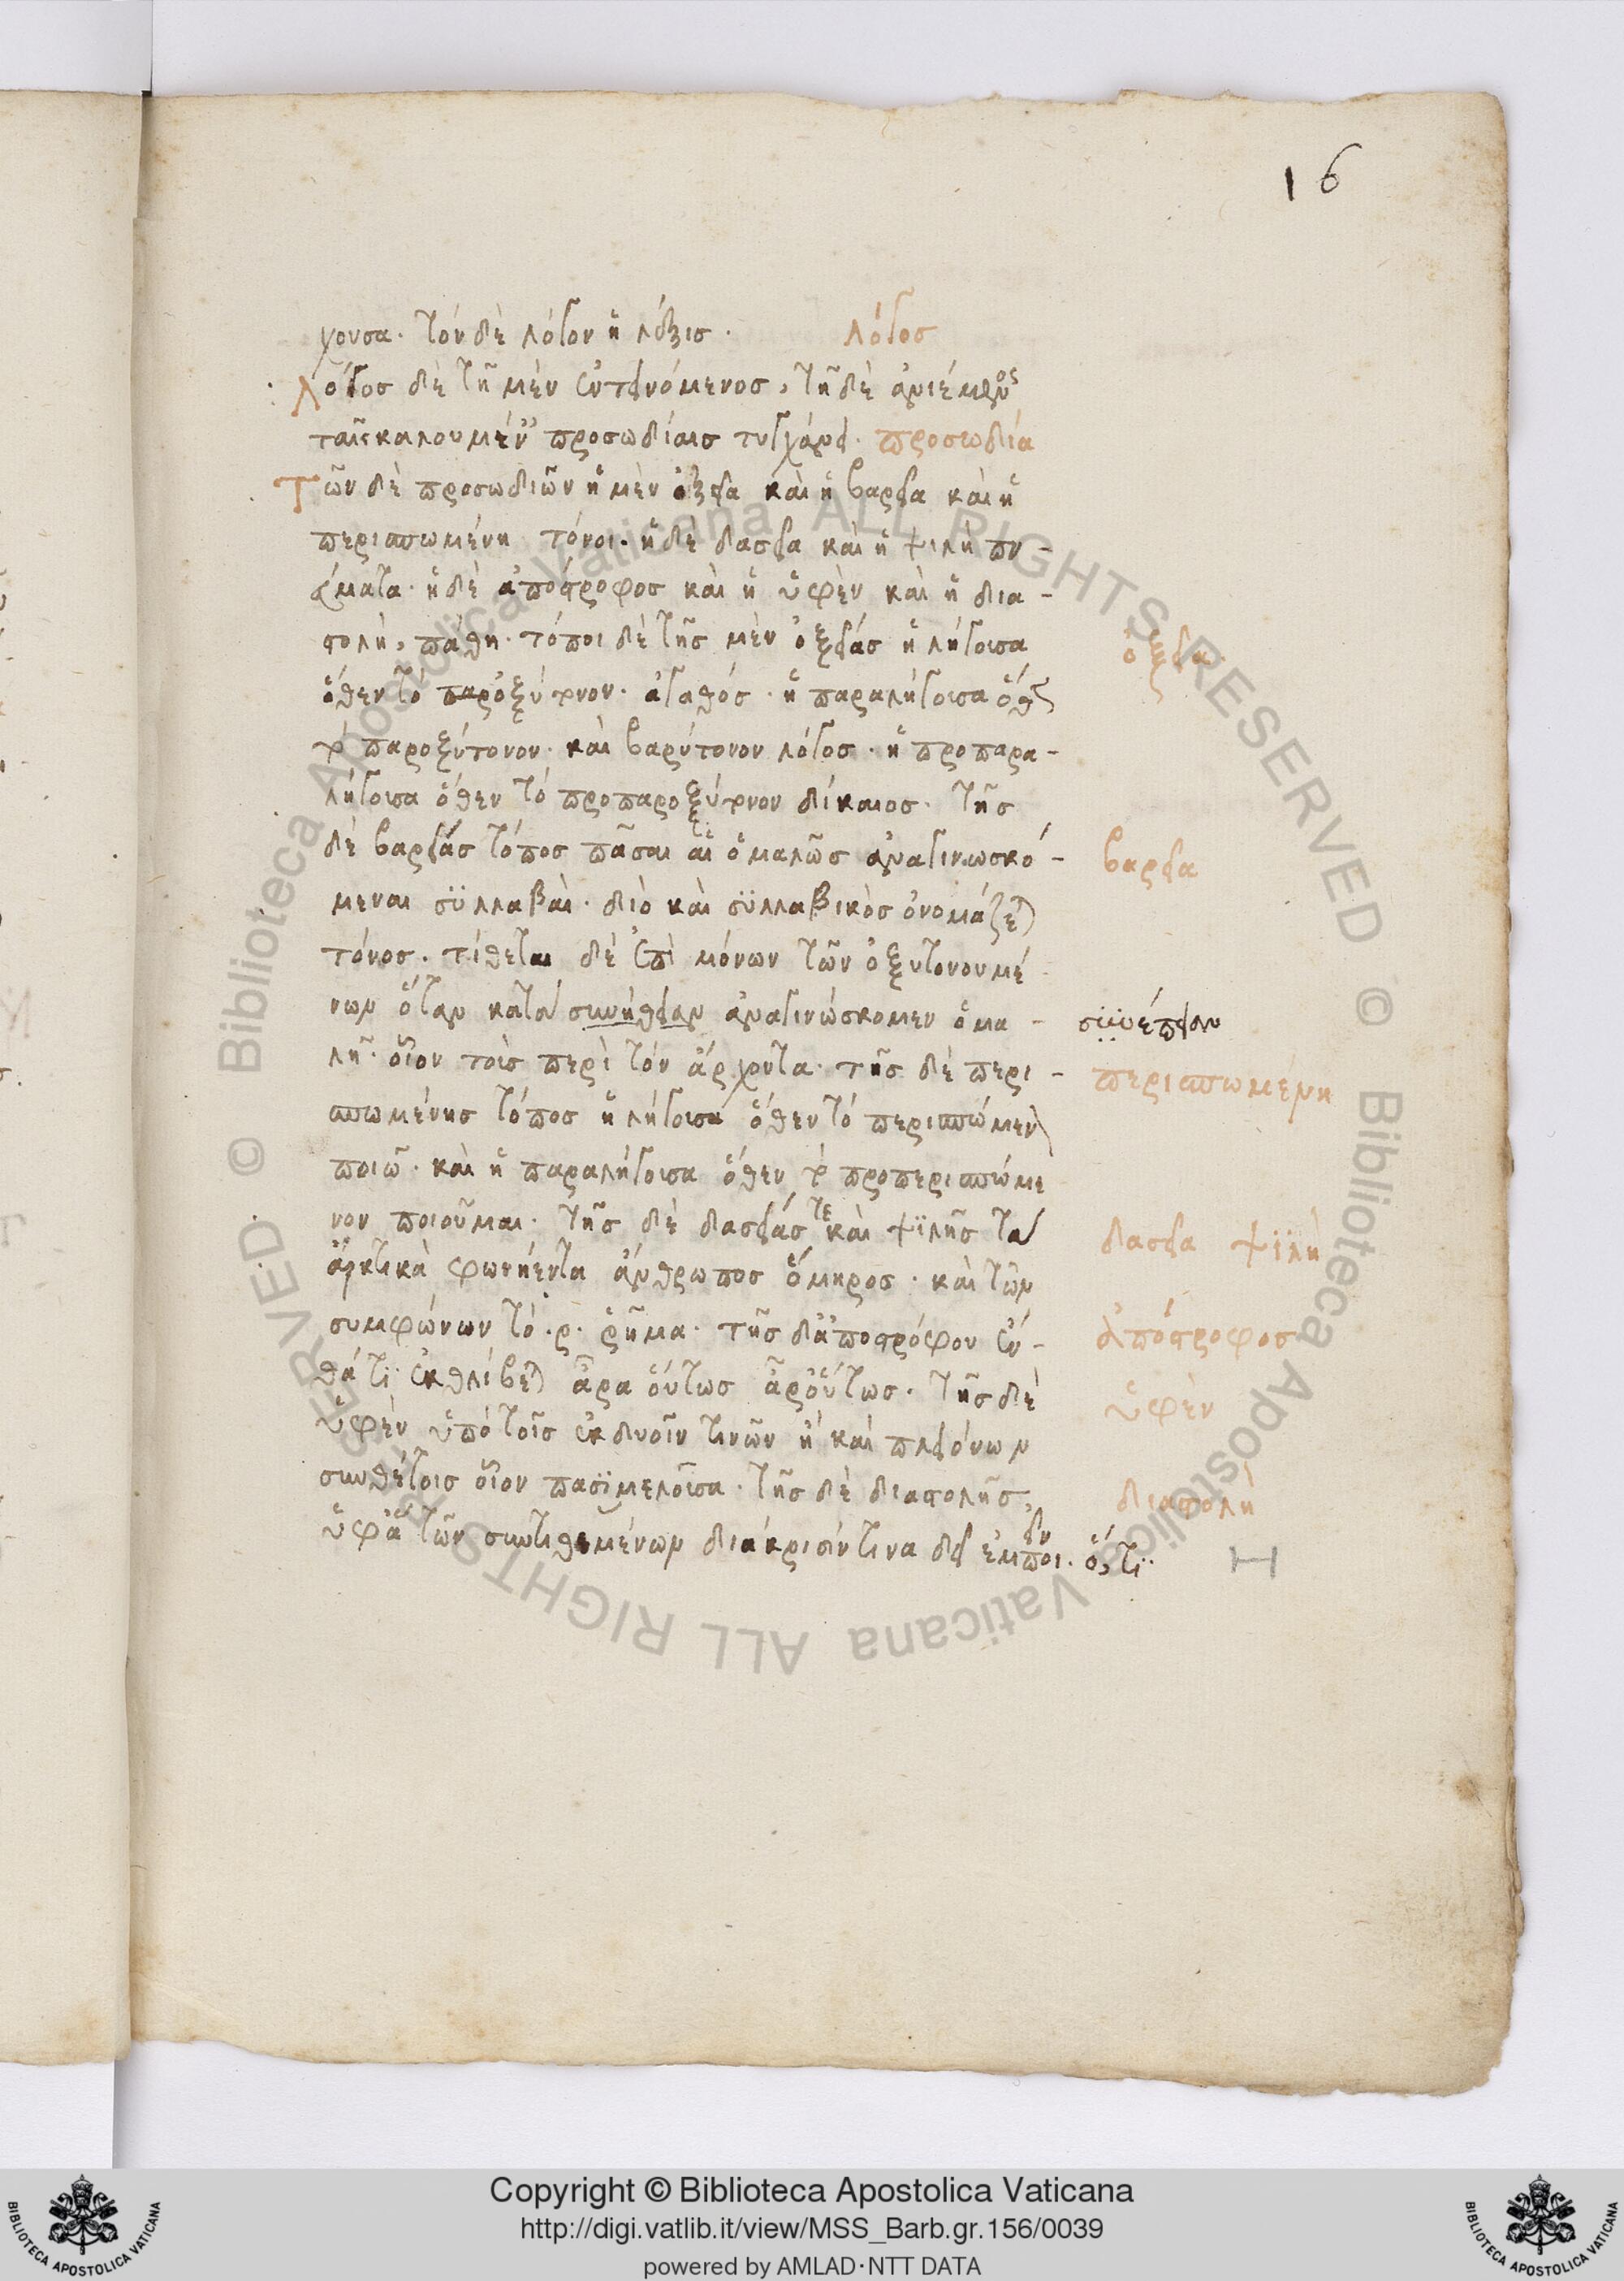 16
χουσα. τὸν δὲ λόγον ἡ λέξις. λόγος
Λόγος δὲ τῇ μὲν ἐντεινόμενος, τῇ δὲ ἀνιέμενος
ταῖς καλουμέναις προσωδίαις τυγχάνει. προσωδία
Τῶν δὲ προσωδιῶν ἡ μὲν ὀξεῖα καὶ ἡ βαρεῖα καὶ ἡ
περισπωμένη τόνοι. ἡ δὲ δασεῖα καὶ ἡ ψιλὴ πν-
εύματα. ἡ δὲ ἀπόστροφος καὶ ἡ ὑφὲν καὶ ἡ δια-
στολὴ, πάθη. τόποι δὲ τῆς μὲν ὀξείας ἡ λήγουσα
ὀξεῖα
ὅθεν τὸ ὀξύτονον. ἀγαθός. ἡ παραλήγουσα ὅθεν
τὸ παροξύτονον. καὶ βαρύτονον λόγος. ἡ προπαρα-
λήγουσα ὅθεν τὸ προπαροξύτονον δίκαιος. τῆς
δὲ βαρείας τόπος πᾶσαι αἱ ὁμαλῶς ἀναγινωσκό-
βαρεῖα
μεναι συλλαβαὶ. διὸ καὶ συλλαβικὸς ὀνομάζεται
τόνος. τίθεται δὲ ἐπὶ μόνων τῶν ὀξυτονουμέ
νων ὅταν κατὰ συνήθειαν ἀναγινώσκομεν ὁμα-
συνέπειαν
λῆ. οἷον τοὶς περὶ τὸν ἄρχοντα. τῆς δὲ περι-
περισπωμένη
σπωμένης τόπος ἡ λήγουσα ὅθεν τὸ περισπώμενον
ποιῶ. καὶ ἡ παραλήγουσα ὅθεν τὸ προπερισπώμε
νον ποιοῦμαι. τῆς δὲ δασείας τε καὶ ψιλῆς τὰ
δασεῖα ψιλὴ
ἀρκτικὰ φωνήεντα ἄνθρωπος ὅμηρος. καὶ τῶν
συμφώνων τὸ .ρ. ῥῆμα. τῆς δ' ἀποστρόφου ἐν-
ἀπόστροφος
θά τι ἐκθλίβεται ἆρα οὕτως ἆρ' οὕτως. τῆς δὲ
ὑφὲν
ὑφὲν ὑπὸ τοῖς ἐκ δυοῖν τινῶν ἢ καὶ πλειόνων
συνθέτοις οἷον πασιμέλουσα. τῆς δὲ διαστολῆς,
διαστολὴ
ὑφ' ἃ τῶν συντιθεμένων διάκρισίν τινα δεῖ ἐμποιεῖν. ὅ,τι
Copyright © Biblioteca Apostolica Vaticana
http://digi.vatlib.it/view/MSS_Barb.gr.156/0039
powered by AMLAD·NTT DATA